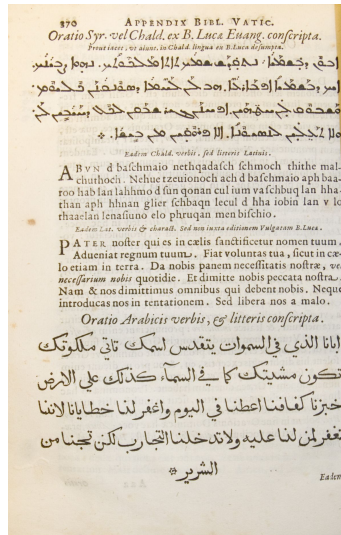 370 APPENDIX BIBL. VATIC.
Oratio Syr. vel Chald. ex B. Lucæ Euang. conscripta.
Prout iacet, vt aiunt, in Chald. lingua ex B. Luca desumpta.
ܐܒܘܢ ܕܒܫܡܝܐ ܢܬܩܕܫ ܫܡܟ ܬܐܬܐ ܡܠܟܘܬܟ ܢܗܘܐ ܨܒܝܢܟ
ܐܝܟ ܕܒܫܡܝܐ ܐܦ ܒܐܪܥܐ ܗܒ ܠܢ ܠܚܡܐ ܕܣܘܢܩܢܢ ܟܠܝܘܡ
ܘܫܒܘܩ ܠܢ ܚܛܗܝܢ ܐܦ ܚܢܢ ܓܝܪ ܫܒܩܢ ܠܟܠ ܕܚܝܒܝܢ ܠܢ
ܘܠܐ ܬܥܠܢ ܠܢܣܝܘܢܐ ܐܠܐ ܦܪܘܩܝܢ ܡܢ ܒܝܫܐ
Eadem Chald. verbis, sed litteris Latinis.
ABVN d baschmaio nethqadasch schmoch thithe mal-
chuthoch. Nehue tzeuionoch ach d baschmaio aph baa-
roo hab lan lahhmo d sun qonan cul ium vaschbuq lan hha-
than aph hhnan glier schbaqn lecul d hha iobin lan v lo
thaaelan lenasiuno elo phruqan men bischio.
Eadem Lat. verbis & charact. Sed non iuxta editionem Vulgatam B. Luca.
PATER noster qui es in cælis sanctificetur nomen tuum.
Adueniat regnum tuum. Fiat voluntas tua, sicut in cæ-
lo etiam in terra. Da nobis panem necessitatis nostræ, vel
necessarium nobis quotidie. Et dimitte nobis peccata nostra.
Nam & nos dimittimus omnibus qui debent nobis. Neque
introducas nos in tentationem. Sed libera nos a malo.
Oratio Arabicis verbis, & litteris conscripta.
ابانا الذي في السموات يتقدس اسمك تاتي ملكوتك
تكون مشيتك كما في السمآء كذلك علي الارض
خبزنا كفافنا اعطنا في اليوم واغفر لنا خطايانا لاننا
نغفر لمن لنا عليه ولا تدخلنا التجارب لكن نجنا من
الشرير
Eadem